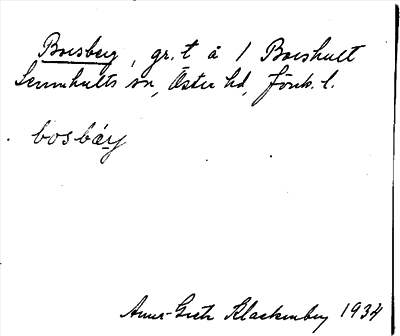 Boesberg, gr. t å 1 Boeshult
Lemnhults sn, Östra hd, Jönk. l.
bosbäry
Anna-Greta Klackenberg 1934